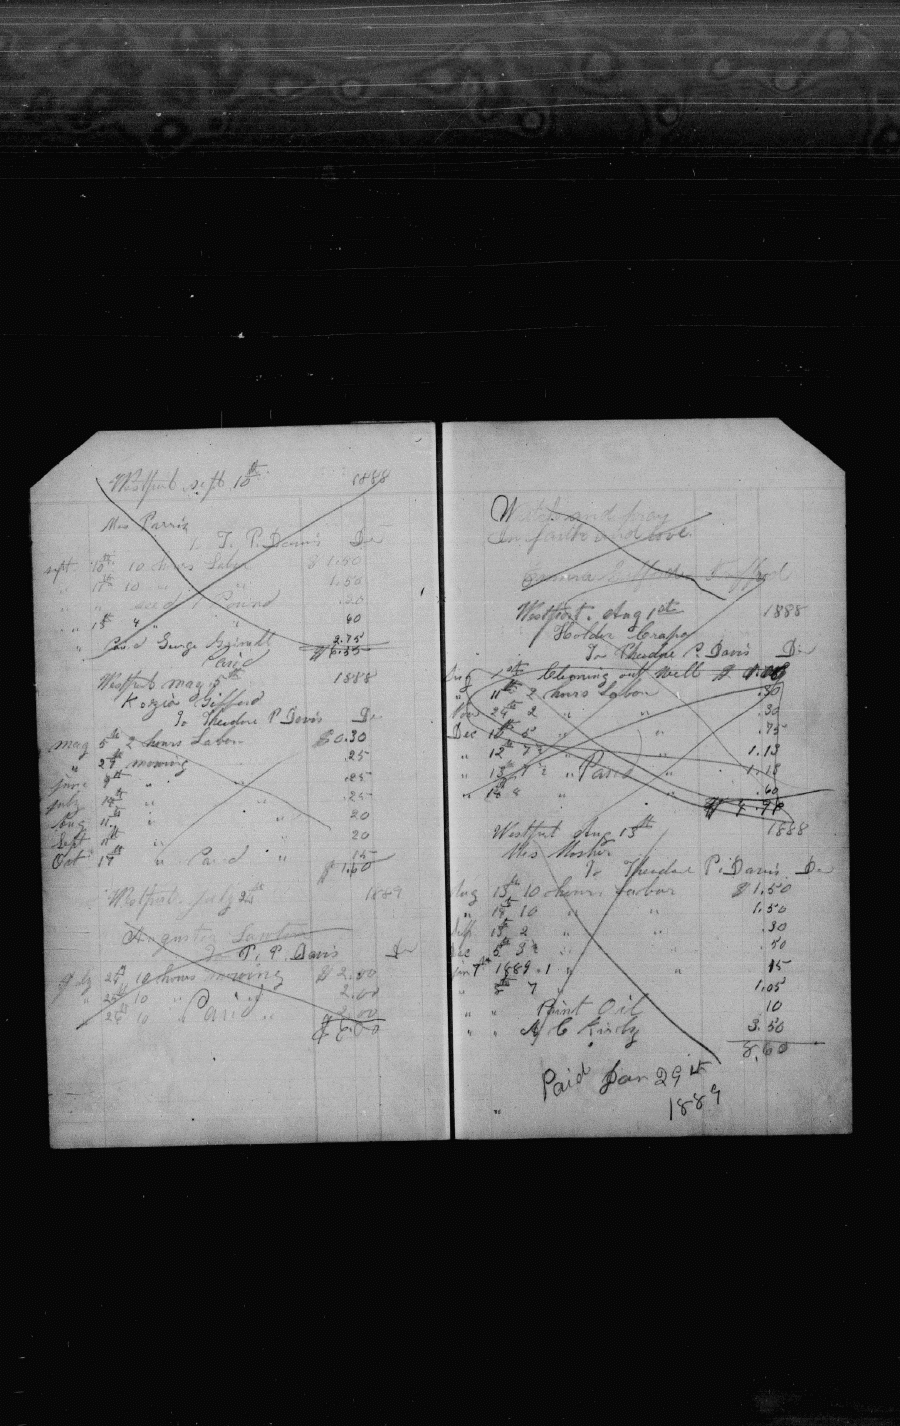 Westport sept 10th 1888
Mrs Parris
To T. P. Davis Dr
sept 10th 10 hours Labor $ 1.50
" 11th 10 " " 1.50
" " seed 1 Pound .20
" 15th 4 " " 60
" Paid George 2.75
Paid $ 6.55
Westport may 5th 1888
Kozia Gifford
To Theodore P. Davis Dr
may 5th 2 hours Labor $ 0.30
" 29th mowing .25
june 9th " " .25
july 14th " " .25
Aug 11th " " 20
Sept 11th " " 20
Oct 19th " Paid " 15
$ 1.60
Westport july 24th 1889
Augustus Lawton
To T. P. Davis Dr
july 24th 10 hours mowing $ 2.00
" 25th 10 " " 2.00
" 26th 10 " Paid " 2.00
$ 6.00
Watch and pray
In faith and love.
Gifford
Westport. Aug 1st 1888
Holder Crapo
To Theodore P. Davis Dr
Aug 1st Cleaning out well $
" 11th 2 hours Labor .30
Nov 24th 2 " " .30
Dec 10th 5 " " .75
" 12th 7½ " " 1.13
" 13th 7½ " Paid " 1.13
" 14th 4 " .60
$ 4.
1888
Westport Aug 13th
Mrs Mosher
To Theodore P. Davis. Dr
Aug 13th 10 hours Labor $ 1.50
" 14th 10 " " 1.50
Sep 13th 2 " " .30
Dec 5th 3½ " " .50
Jan 1st 1889. 1 " " 15
" 8th 7 " 1.05
" " Paint Oil 10
" " A C Kirby 3.50
8.60
Paid Jan 29th
1889
"